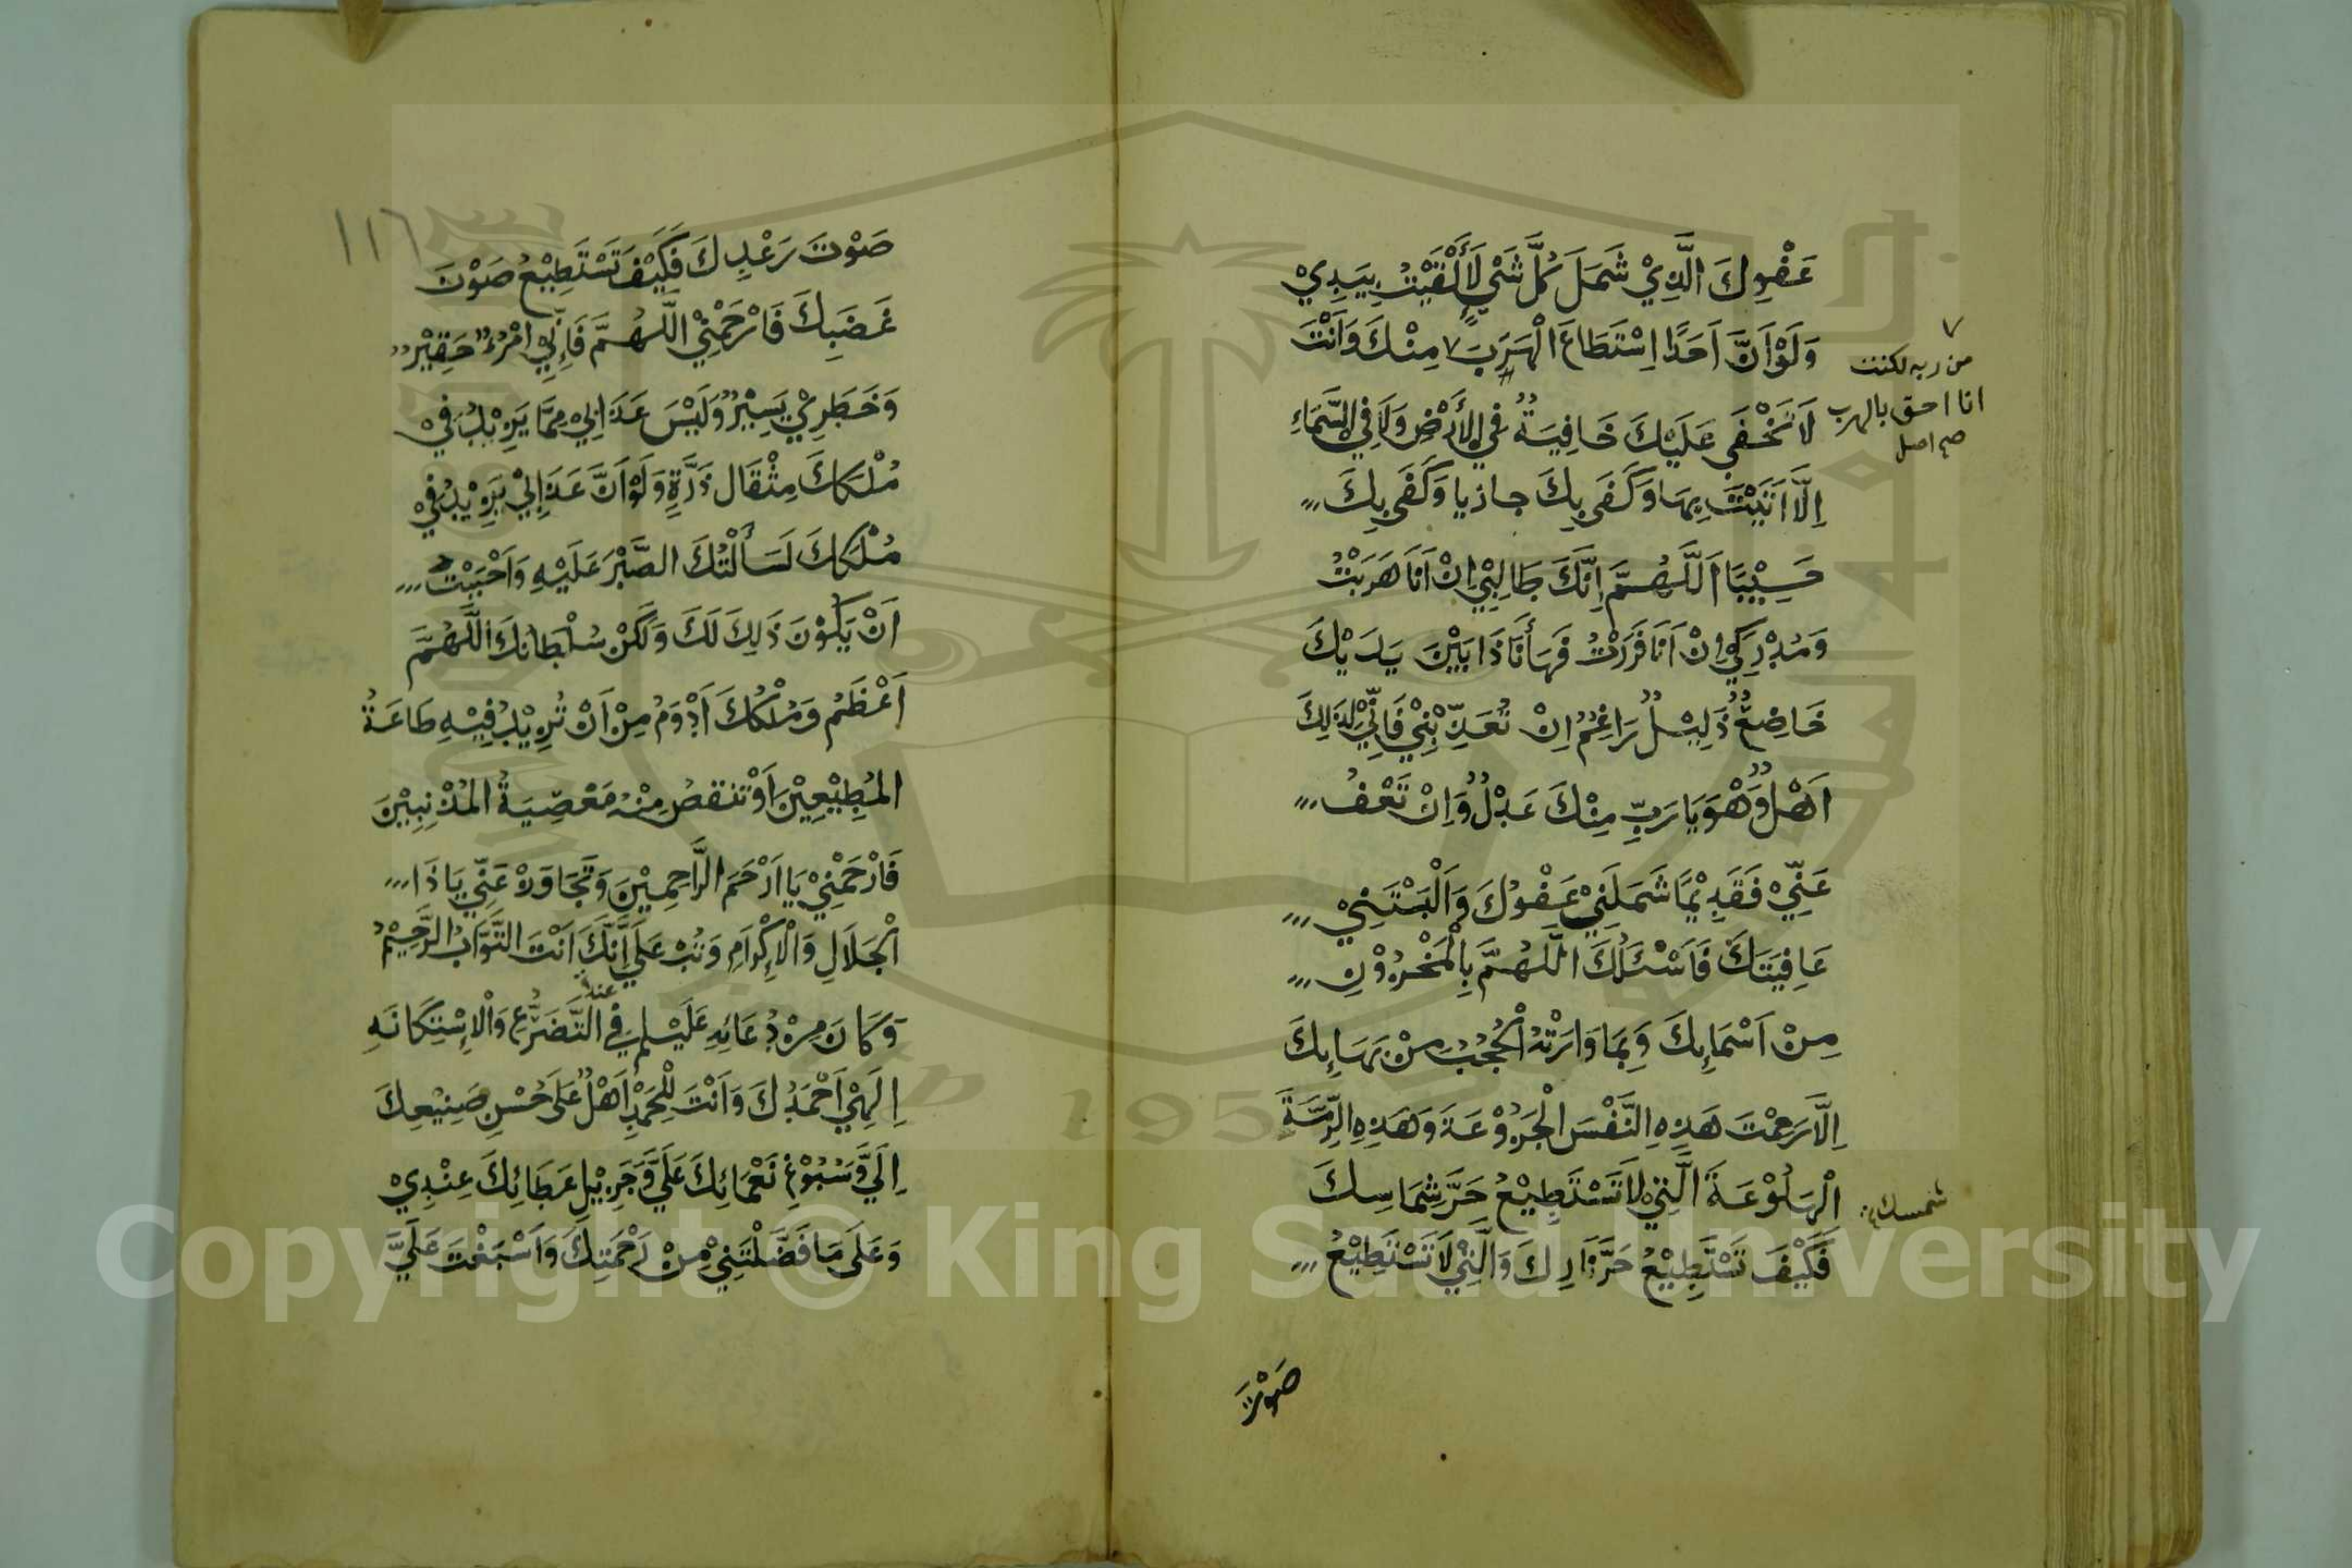 عَفْوِكَ الَّذِيْ شَمَلَ كُلَّ شَيْءٍ لَأَلْقَيْتُ بِيَدِيْ
وَلَوْ اَنَّ اَحَدًا اِسْتَطَاعَ الْهَرَبَ ٧ مِنْكَ وَاَنْتَ
٧
من ربه لكنت
انا احق بالهرب
صح اصل
لَا تَخْفَى عَلَيْكَ خَافِيَةٌ فِي الْأَرْضِ وَلَا فِي السَّمَاءِ
اِلَّا اَتَيْتَ بِهَا وَكَفَى بِكَ جازيا وَكَفَى بِكَ
حَسِيْبًا اَللَّهُمَّ اِنَّكَ طَالِبِيْ اِنْ اَنَا هَرَبْتُ
وَمُدْرِكِيْ اِنْ اَنَا فَرَرْتُ فَهَا أَنَا ذَا بَيْنَ يَدَيْكَ
خَاضِعٌ ذَلِيْلٌ رَاغِمٌ اِنْ تُعَذِّبْنِيْ فَاِنِّيْ لِذَلِكَ
اَهْلٌ وَهْوَ يَا رَبِّ مِنْكَ عَدْلٌ وَاِنْ تَعْفُ
عَنِّيْ فَقَدِيْمًا شَمَلَنِيْ عَفْوُكَ وَاَلْبَسْتَنِيْ
عَافِيَتَكَ فَاَسْئَلُكَ اللَّهُمَّ بِالْمَخْزُوْنِ
مِنْ اَسْمَائِكَ وَبِمَا وَارَتْهُ الْحُجُبُ مِنْ بَهَائِكَ
اِلَّا رَحِمْتَ هَذِهِ النَّفْسَ الْجَزُوْعَةَ وَهَذِهِ الرِّمَّةَ
الْهَلُوْعَةَ الَّتِيْ لَا تَسْتَطِيْعُ حَرَّ شِمَاسِكَ
شمسك
فَكَيْفَ تَسْتَطِيْعُ حَرَّ نَارِكَ وَالَّتِيْ لَا تَسْتَطِيْعُ
صَوْتَ
١١٦
صَوْتَ رَعْدِكَ فَكَيْفَ تَسْتَطِيْعُ صَوْتَ
غَضَبِكَ فَارْحَمْنِيْ اللَّهُمَّ فَاِنِّيْ امْرُءٌ حَقِيْرٌ
وَخَطَرِيْ يَسِيْرٌ وَلَيْسَ عَذَابِيْ مِمَّا يَزِيْدُ فِيْ
مُلْكِكَ مِثْقَالَ ذَرَّةٍ وَلَوْ اَنَّ عَذَابِيْ يَزِيْدُ فِيْ
مُلْكِكَ لَسَأَلْتُكَ الصَّبْرَ عَلَيْهِ وَاَحْبَبْتُ
اَنْ يَكُوْنَ ذَلِكَ لَكَ وَلَكِنْ سُلْطَانُكَ اللَّهُمَّ
اَعْظَمُ وَمُلْكُكَ اَدْوَمُ مِنْ اَنْ تُزِيْدُ فِيْهِ طَاعَةُ
الْمُطِيْعِيْنَ اَوْ تَنْقُصُ مِنْهُ مَعْصِيَةُ الْمُذْنِبِيْنَ
فَارْحَمْنِيْ يَا اَرْحَمَ الرَّاحِمِيْنَ وَتَجَاوَزْ عَنِّيْ يَا ذَا
الْجَلَالِ وَالْاِكْرَامِ وَتُبْ عَلَيَّ اِنَّكَ اَنْتَ التَّوَّابُ الرَّحِيْمُ
وَكَانَ مِنْ دُعَائِهِ عَلَيْسلم فِي التَّضَرُّعِ وَالْاِسْتِكَانَهِ
اِلَهِيْ اَحْمَدُكَ وَاَنْتَ لِلْحَمْدِ اَهْلٌ عَلَى حُسْنِ صَنِيْعِكَ
اِلَيَّ وَسُبُوْغِ نَعْمَائِكَ عَلَيَّ وَجَزِيْلِ عَطَائِكَ عِنْدِيْ
وَعَلَى مَا فَضَّلْتَنِيْ مِنْ رَحْمَتِكَ وَاَسْبَغْتَ عَلَيَّ
Copyright © King Saud University